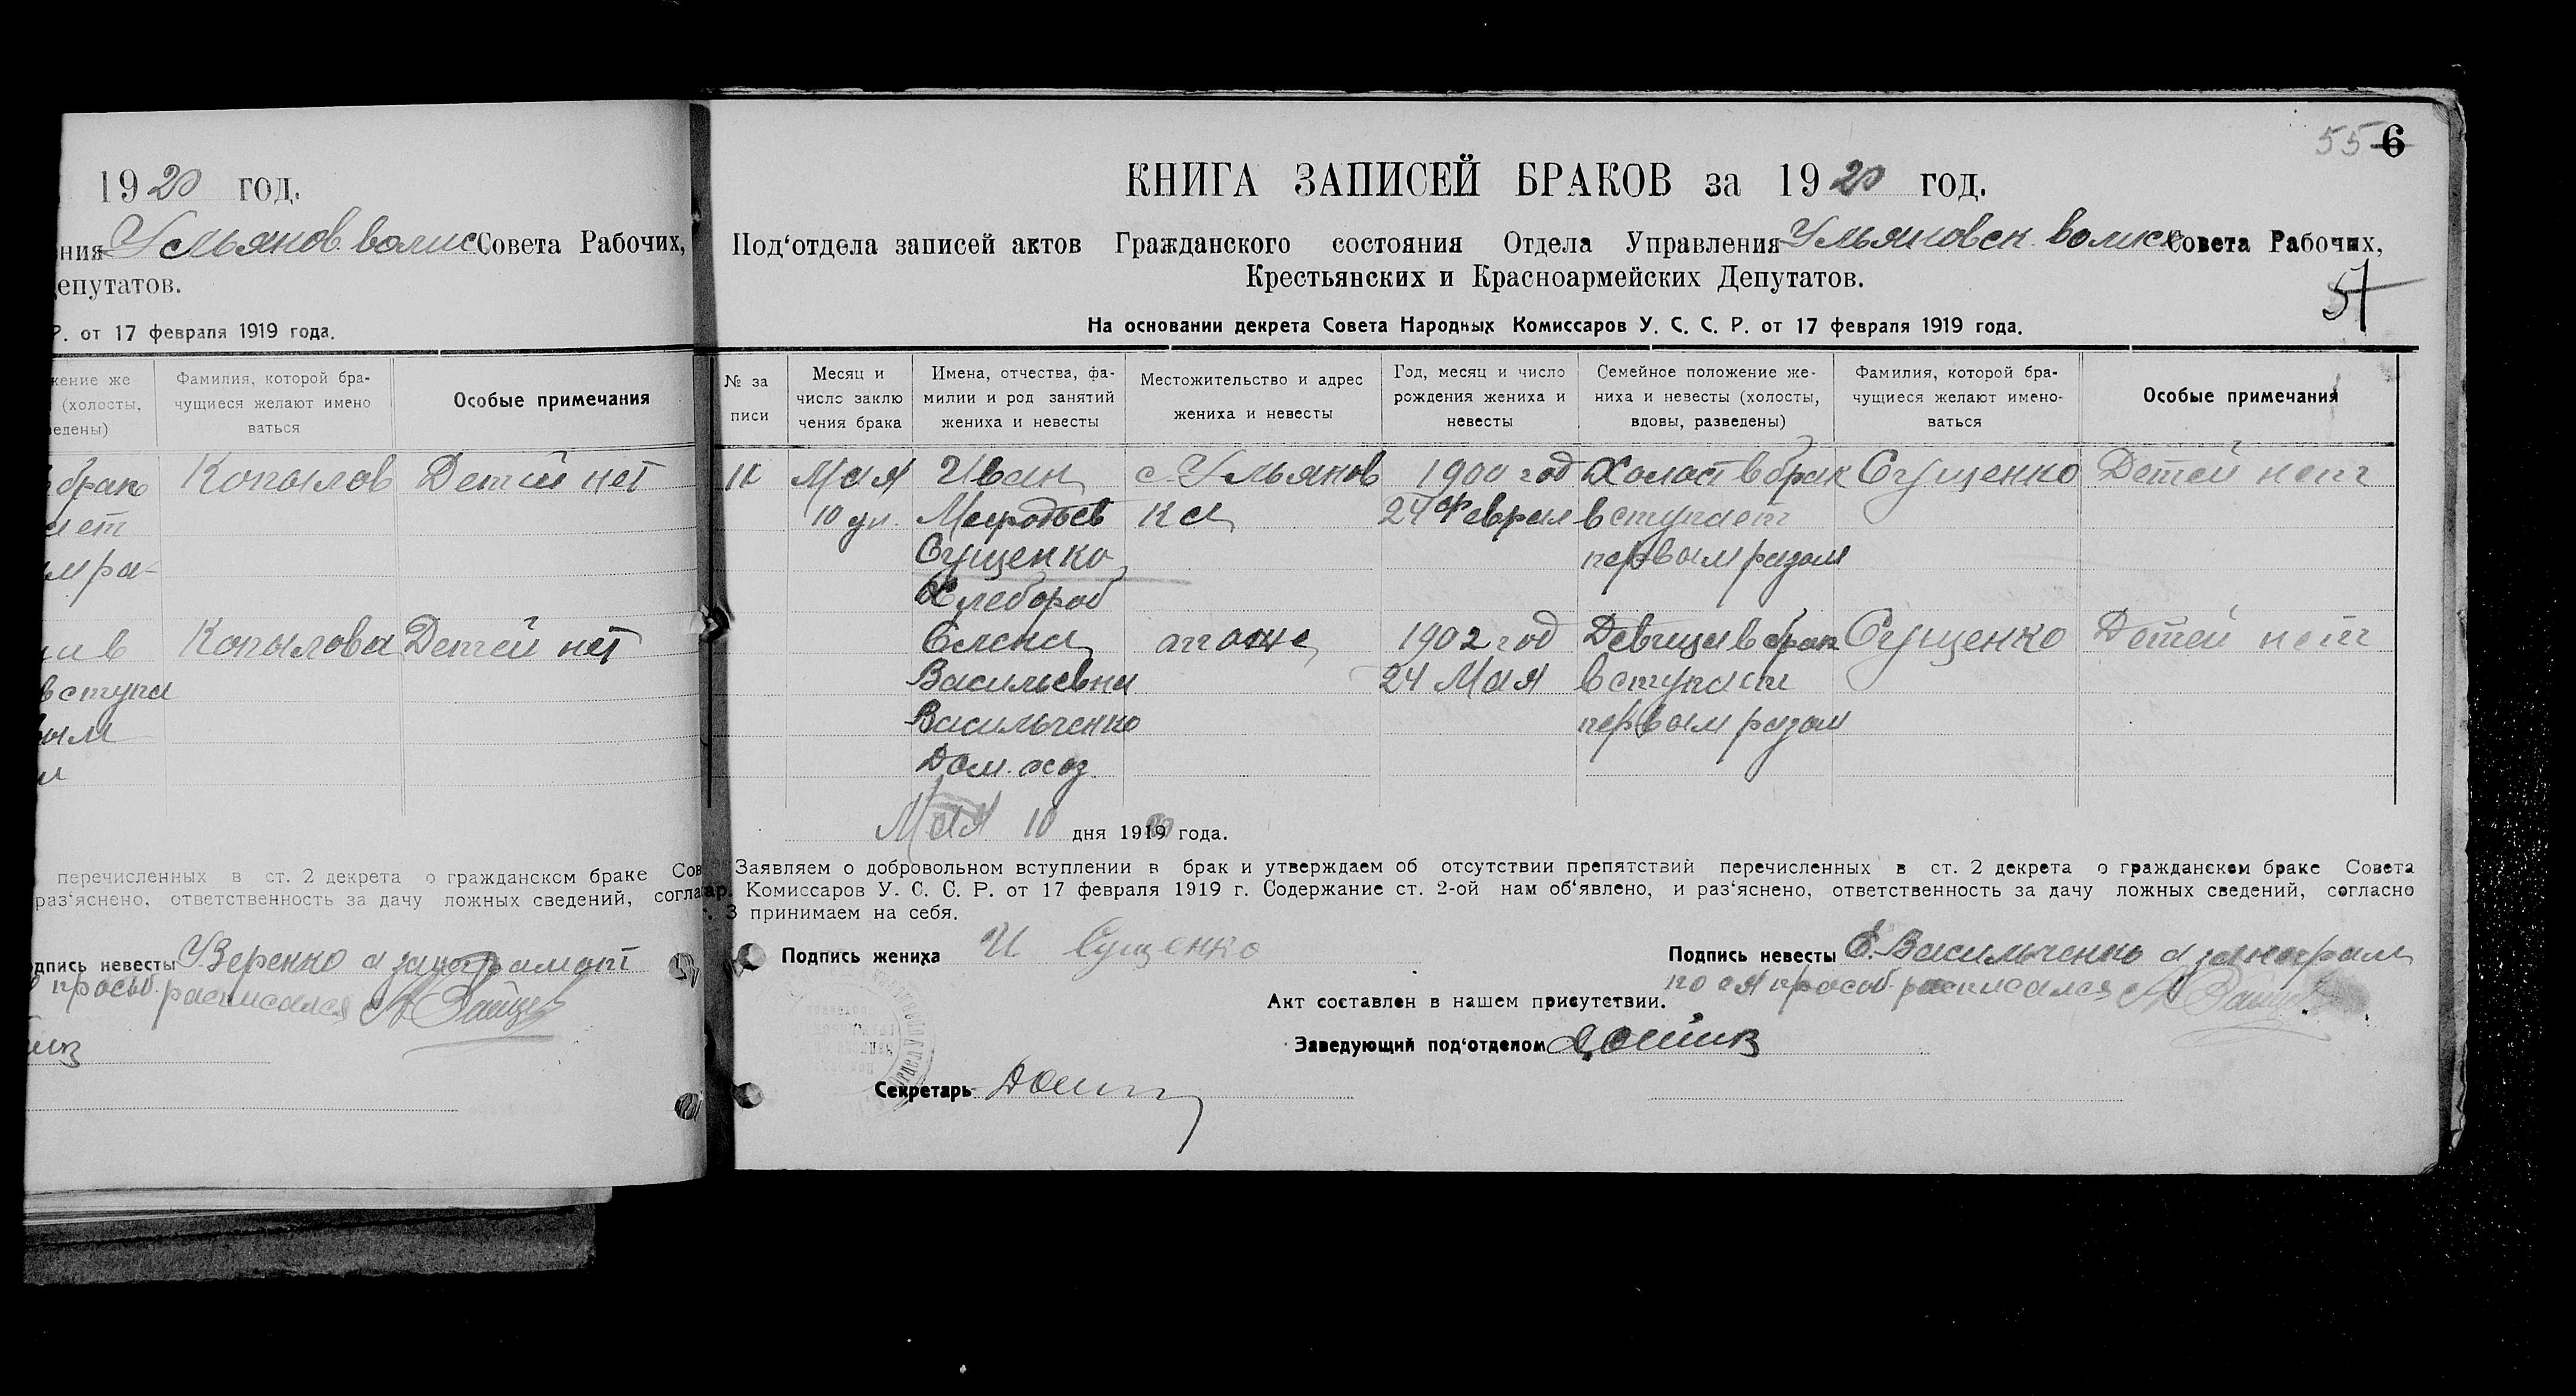 1920 год.
ния Ульянов. волис Совета Рабочих,
епутатов.
Р. от 17 февраля 1919 года.
жение же
(холосты,
едены)
Фамилия, которой бра-
чущиеся желают имено
ваться
Особые примечания
брак Копылов Детей нет
ает
им ра-
в Копылова Детей нет
вступа
вым
перечисленных в ст. 2 декрета о гражданском браке Сов
раз‘яснено, ответственность за дачу ложных сведений, согла
одпись невесты Зеренко а за
просьб. расписался А Зайцев
55 6
КНИГА ЗАПИСЕЙ БРАКОВ за 1920 год.
Под‘отдела записей актов Гражданского состояния Отдела Управления Ульяновск волис Совета Рабочих,
Крестьянских и Красноармейских Депутатов.
На основании декрета Совета Народных Комиссаров У. С. С. Р. от 17 февраля 1919 года.
№ за
писи
Месяц и
число заклю
чения брака
Имена, отчества, фа-
милии и род занятий
жениха и невесты
Местожительство и адрес
жениха и невесты
Год, месяц и число
рождения жениха и
невесты
Семейное положение же-
ниха и невесты (холосты,
вдовы, разведены)
Фамилия, которой бра-
чущиеся желают имено-
ваться
Особые примечания
Мая Иван с. Ульянов 1900 год Холост в брак Сущенко Детей нет
10 дн. Мефодьев ка 24 Февраля вступает
Сущенко первым разом
Хлебороб
Елена тоже 1902 год Девица в брак Сущенко Детей нет
Васильевна 24 Мая вступает
Васильченко первым разом
Дом. хоз.
Мая 10 дня 1919 года.
Заявляем о добровольном вступлении в брак и утверждаем об отсутствии препятствий перечисленных в ст. 2 декрета о гражданском браке Совета
ар. Комиссаров У. С. С. Р. от 17 февраля 1919 г. Содержание ст. 2-ой нам об‘явлено, и раз‘яснено, ответственность за дачу ложных сведений, согласно
г. 3 принимаем на себя.
Подпись жениха И Сущенко
Подпись невесты Е. Васильченко а
по ея просьб. расписался А Зайцев
Акт составлен в нашем присутствии.
Заведующий под‘отделом
Секретарь